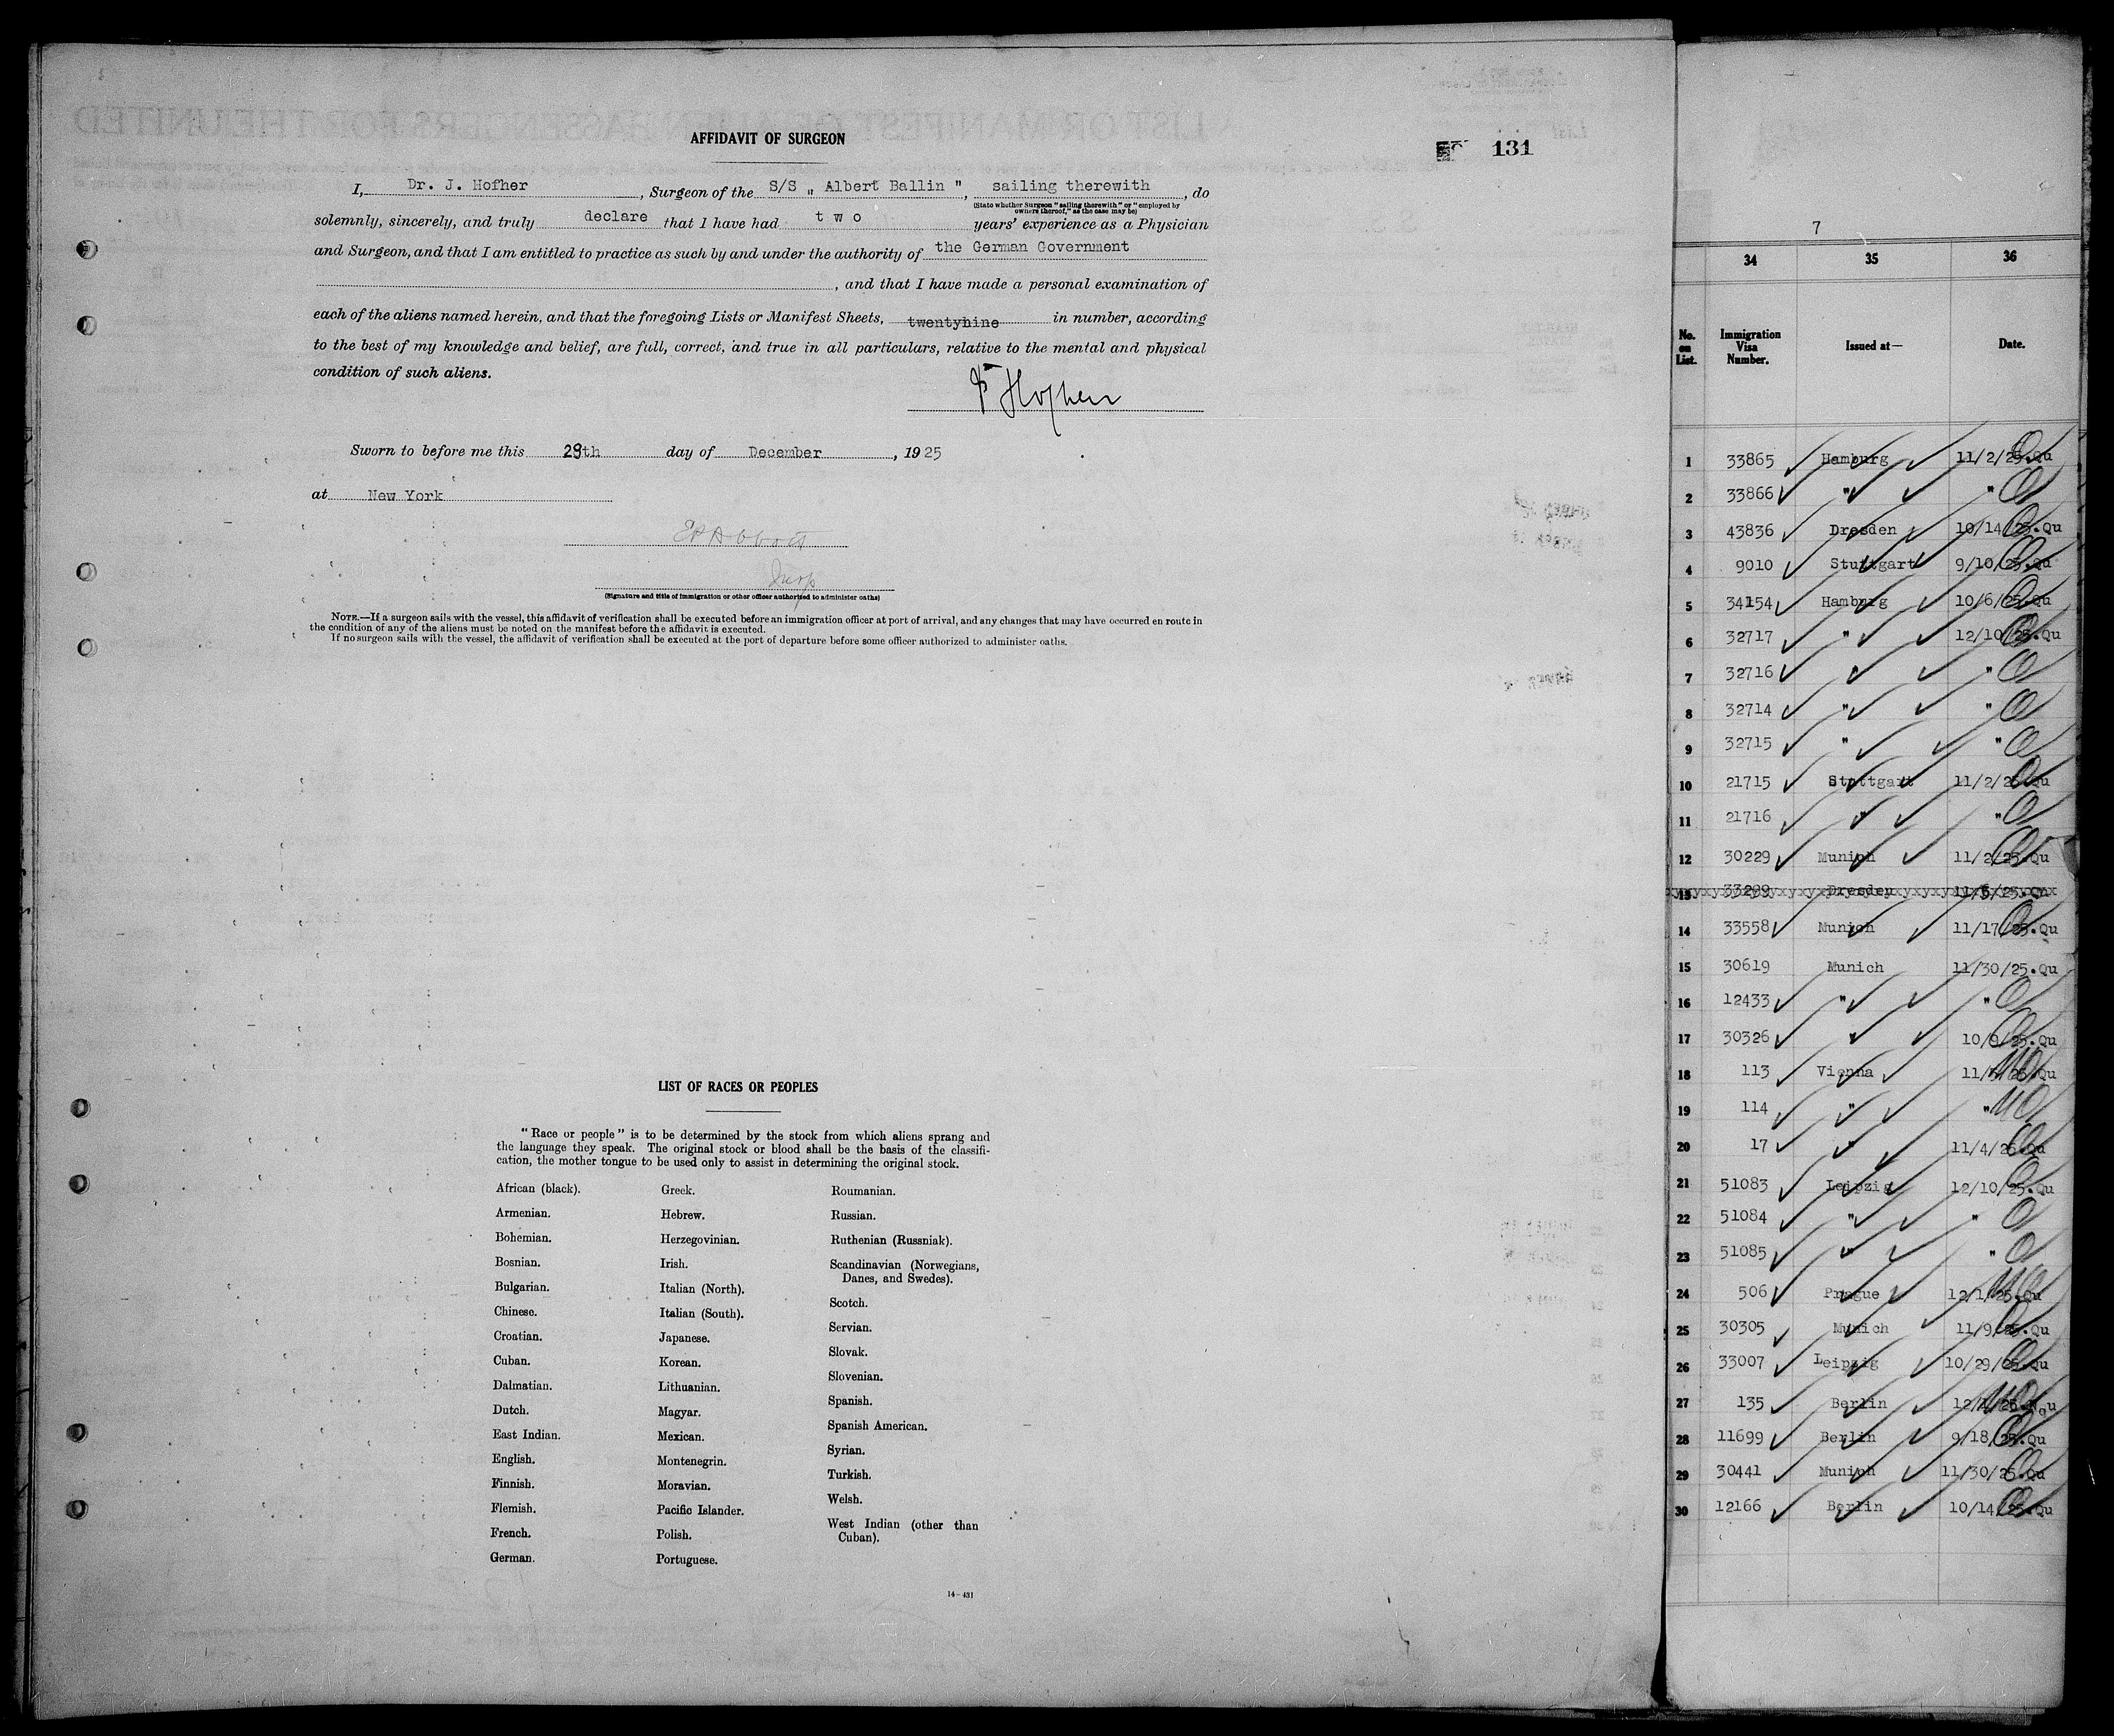 AFFIDAVIT OF SURGEON
131
I, Dr. J. Hofher, Surgeon of the S/S „ Albert Ballin ", sailing therewith, do
(State whether Surgeon "sailing therewith" or "employed by
owners thereof," as the case may be)
solemnly, sincerely, and truly declare that I have had t w o years' experience as a Physician
and Surgeon, and that I am entitled to practice as such by and under the authority of the German Government
, and that I have made a personal examination of
each of the aliens named herein, and that the foregoing Lists or Manifest Sheets, twentynine in number, according
to the best of my knowledge and belief, are full, correct, and true in all particulars, relative to the mental and physical
condition of such aliens.
Hofher
Sworn to before me this 28th day of December, 1925
at New York
Insp
(Signature and title of immigration or other officer authorized to administer oaths)
NOTE.—If a surgeon sails with the vessel, this affidavit of verification shall be executed before an immigration officer at port of arrival, and any changes that may have occurred en route in
the condition of any of the aliens must be noted on the manifest before the affidavit is executed.
If no surgeon sails with the vessel, the affidavit of verification shall be executed at the port of departure before some officer authorized to administer oaths.
LIST OF RACES OR PEOPLES
"Race or people" is to be determined by the stock from which aliens sprang and
the language they speak. The original stock or blood shall be the basis of the classifi-
cation, the mother tongue to be used only to assist in determining the original stock.
African (black).
Armenian.
Bohemian.
Bosnian.
Bulgarian.
Chinese.
Croatian.
Cuban.
Dalmatian.
Dutch.
East Indian.
English.
Finnish.
Flemish.
French.
German.
Greek.
Hebrew.
Herzegovinian.
Irish.
Italian (North).
Italian (South).
Japanese.
Korean.
Lithuanian.
Magyar.
Mexican.
Montenegrin.
Moravian.
Pacific Islander.
Polish.
Portuguese.
Roumanian.
Russian.
Ruthenian (Russniak).
Scandinavian (Norwegians,
Danes, and Swedes).
Scotch.
Servian.
Slovak.
Slovenian.
Spanish.
Spanish American.
Syrian.
Turkish.
Welsh.
West Indian (other than
Cuban).
14-431
7
34 35 36
No. on List. Immigration Visa Number. Issued at— Date.
1 33865 Hamburg 11/2/25.Qu
2 33866 " "
3 43836 Dresden 10/14/25.Qu
4 9010 Stuttgart 9/10/25.Qu
5 34154 Hamburg 10/6/25.Qu
6 32717 " 12/10/25.Qu
7 32716 " "
8 32714 " "
9 32715 " "
10 21715 Stuttgart 11/2/25.Qu
11 21716 " "
12 30229 Munich 11/2/25.Qu
13 33299 Dresden 11/5/25.Qu
14 33558 Munich 11/17/25.Qu
15 30619 Munich 11/30/25.Qu
16 12433 " "
17 30326 " 10/9/25.Qu
18 113 Vienna 11/5/25.Qu
19 114 " "
20 17 " 11/4/25.Qu
21 51083 Leipzig 12/10/25.Qu
22 51084 " "
23 51085 " "
24 506 Prague 12/1/25.Qu
25 30305 Munich 11/9/25.Qu
26 33007 Leipzig 10/29/25.Qu
27 135 Berlin
28 11699 Berlin 9/18/25.Qu
29 30441 Munich 11/30/25.Qu
30 12166 Berlin 10/14/25.Qu